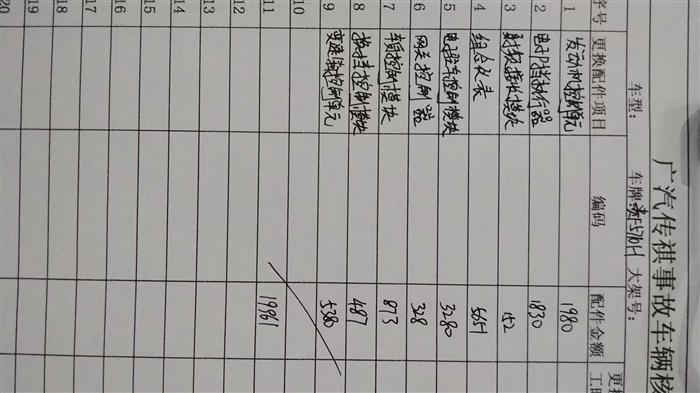 广汽传祺事故车辆核
车型: 车牌: 大架号:
序号 更换配件项目 编码 配件金额
1 发动机控制单元 1980
2 电子P档执行器 1830
3 射频接收模块 152
4 组合仪表 5651
5 电子驻车控制模块 3280
6 网关控制器 328
7 车身控制模块 873
8 换挡控制模块 487
9 变速箱控制单元 5380
10
11 19961
12
13
14
15
16
17
18
19
20